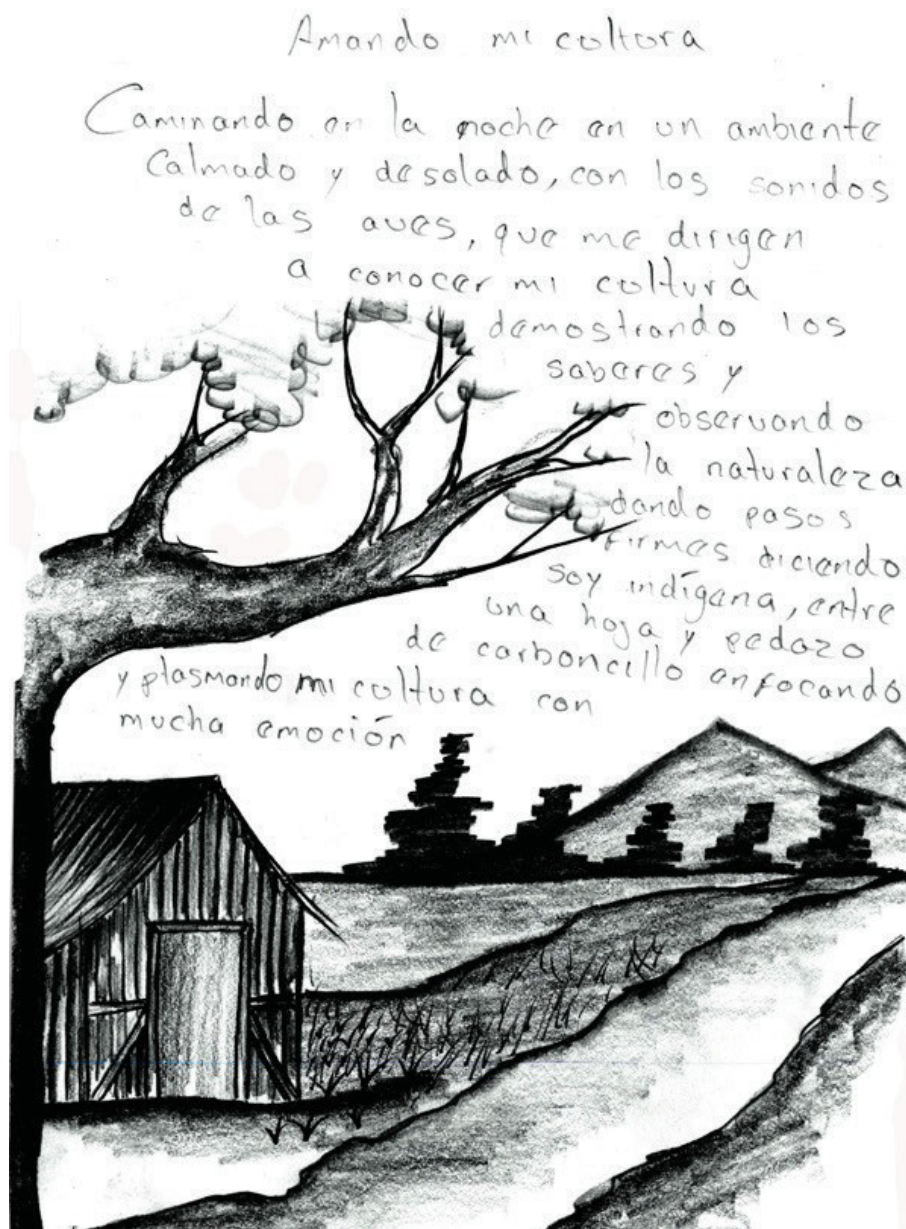 Amando mi coltora
Caminando en la noche en un ambiente
Calmado y desolado, con los sonidos
de las aves, que me dirigen
a conocer mi coltura
demostrando los
saberes y
observando
la naturaleza
dando pasos
firmes diciendo
soy indígena, entre
una hoja y pedazo
de carboncillo enfocando
y plasmando mi coltura con
mucha emoción